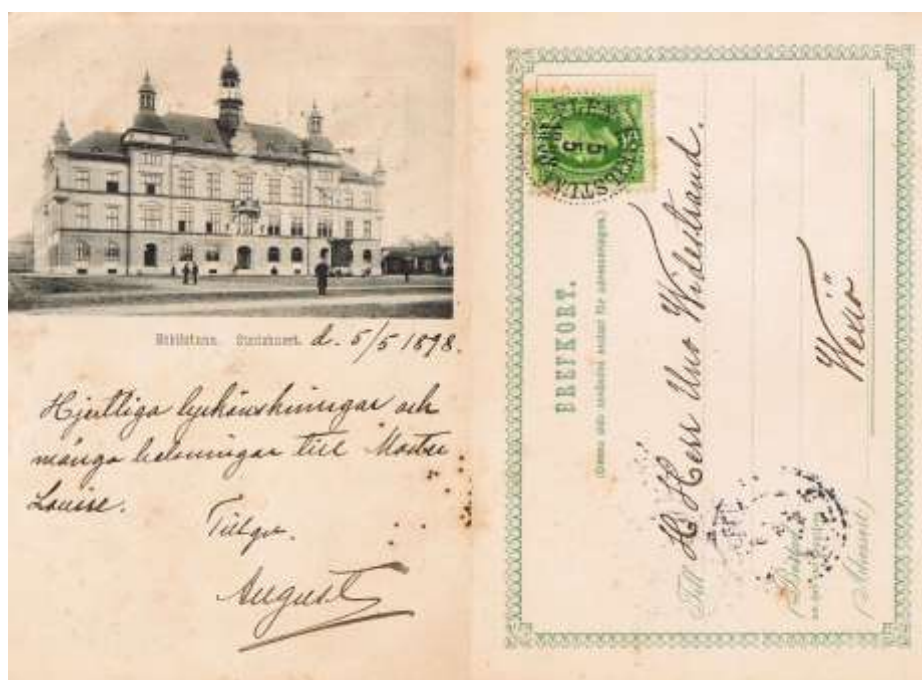 Eskilstuna. Stadshuset. d. 5/5 1898.
Hjertliga lyckönskningar och
många helsningar till Moster
Louise.
Tillgv.
August
BREFKORT.
(Denna sida är endast för adressen.)
Till H Herr Uno Widestrand.
Wexiö
ESKILSTUNA
5
5